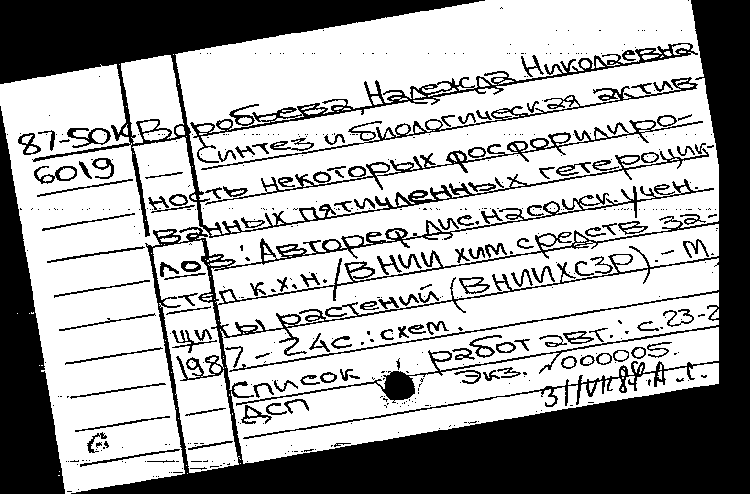 87-50К Воробьева, Надежда Николаевна
6019 Синтез и биологическая актив-
ность некоторых фосфорилиро-
ванных пятичленных гетероцик-
лов: Автореф. дис. на соиск. учен.
степ. к.х.н. / ВНИИ хим. средств за-
щиты растений (ВНИИХСЗР). - М.,
1987. - 24с.: схем.
Список работ авт.: с. 23-2
ДСП Экз. №000005.